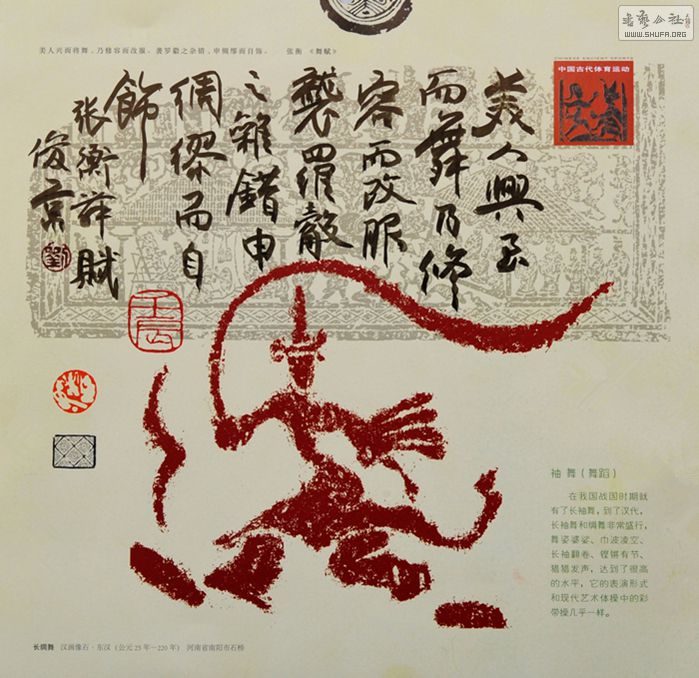 书艺公社
WWW.SHUFA.ORG
美人兴而将舞，乃修容而改服。袭罗縠之杂错，申绸缪而自饰。 张衡《舞赋》
CHINESE ANCIENT SPORTS
中国古代体育运动
美人興
而舞乃修
容而改服
襲羅縠
之雜錯申
綢繆而自
飾
張衡舞賦
俊京
劉
壬辰
袖舞（舞蹈）
在我国战国时期就
有了长袖舞，到了汉代，
长袖舞和绸舞非常盛行，
舞姿婆娑、巾波凌空、
长袖翻卷、铿锵有节、
猎猎发声，达到了很高
的水平，它的表演形式
和现代艺术体操中的彩
带操几乎一样。
长绸舞 汉画像石·东汉（公元25年—220年） 河南省南阳市石桥